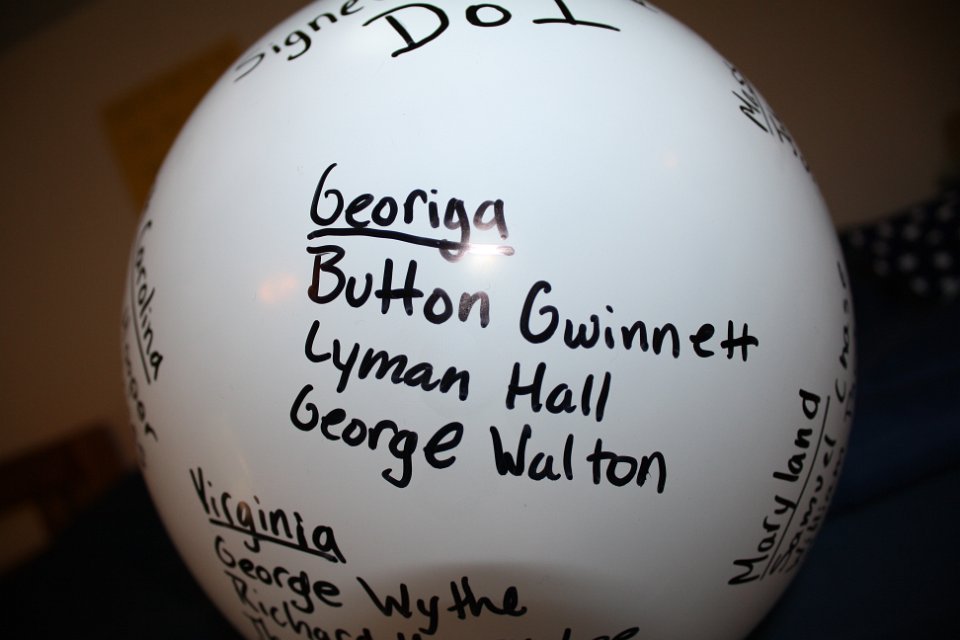 Signed
DoI
Georiga
Button Gwinnett
Lyman Hall
George Walton
Carolina
Virginia
George Wythe
Richard
Maryland
Samuel Chase